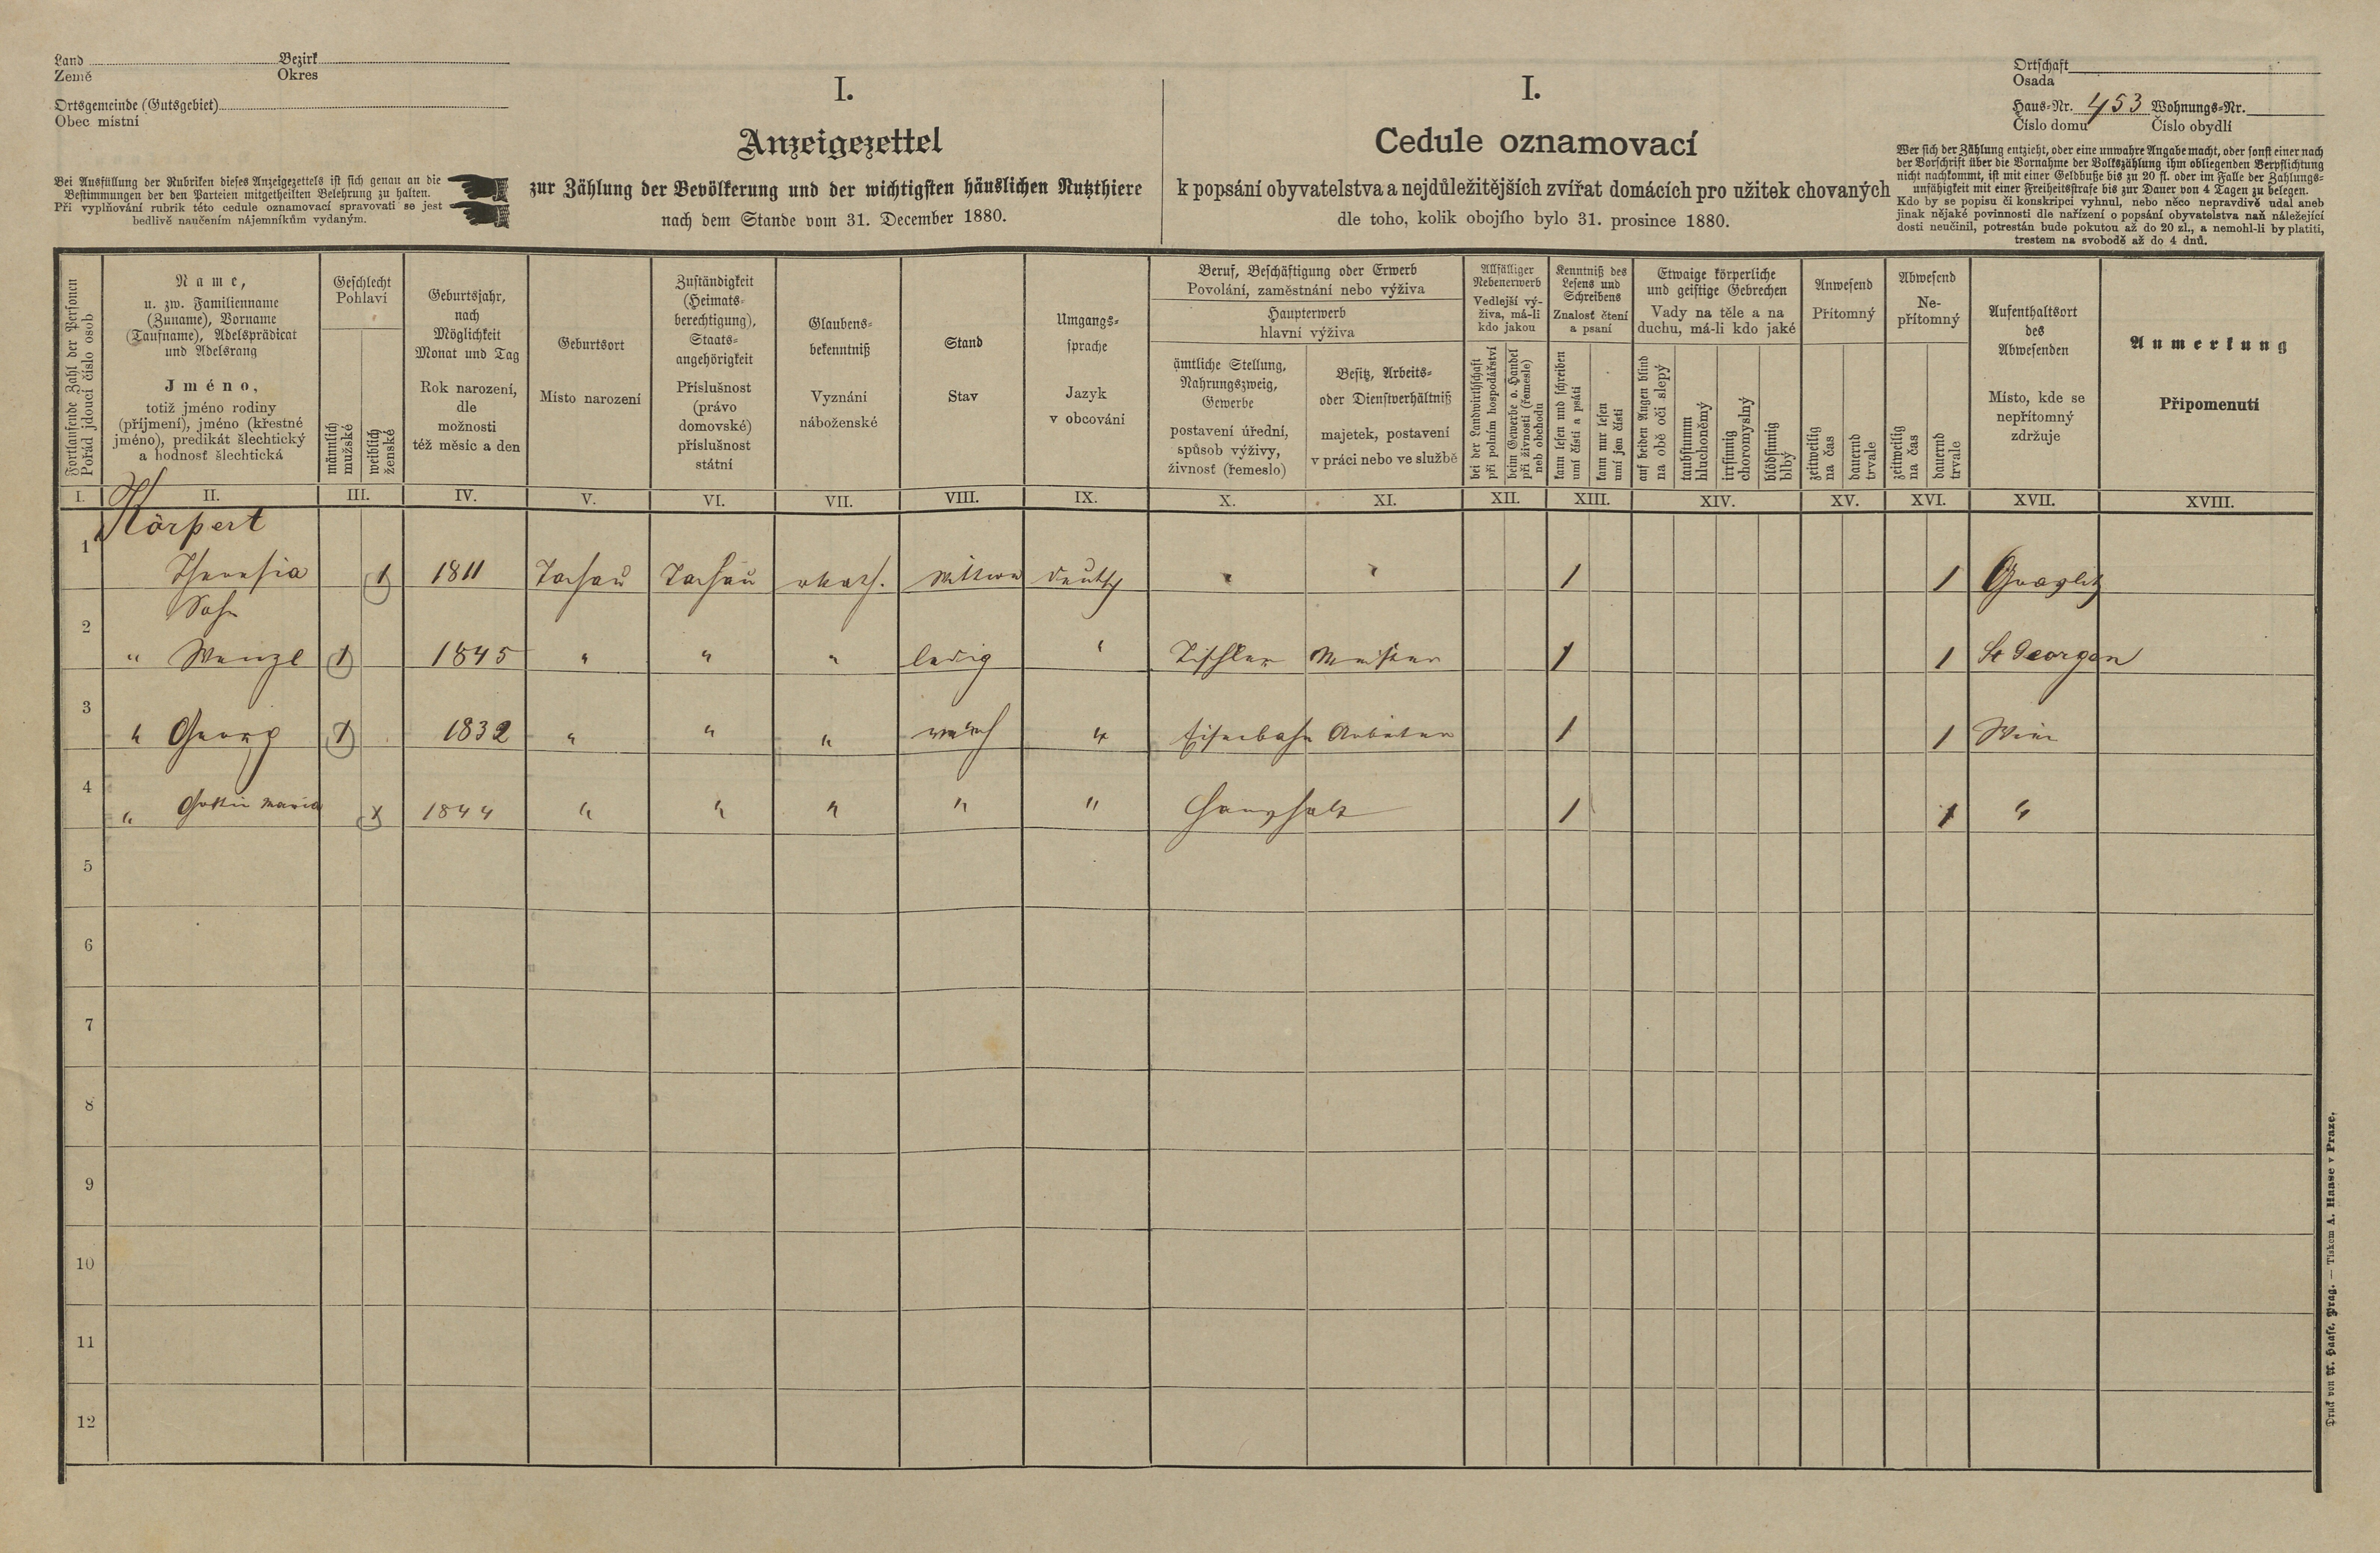 Land Bezirk
Země Okres
Ortsgemeinde (Gutsgebiet)
Obec místní
Bei Ausfüllung der Rubriken dieses Anzeigezettels ist sich genau an die
Bestimmungen der den Parteien mitgetheilten Belehrung zu halten.
Při vyplňování rubrik této cedule oznamovací spravovati se jest
bedlivě naučením nájemníkům vydaným.
I.
Anzeigezettel
zur Zählung der Bevölkerung und der wichtigsten häuslichen Nutzthiere
nach dem Stande vom 31. December 1880.
I.
Cedule oznamovací
k popsání obyvatelstva a nejdůležitějších zvířat domácích pro užitek chovaných
dle toho, kolik obojího bylo 31. prosince 1880.
Ortschaft
Osada
Haus-Nr. 453 Wohnungs-Nr.
Číslo domu Číslo obydlí
Wer sich der Zählung entzieht, oder eine unwahre Angabe macht, oder sonst einer nach
der Vorschrift über die Vornahme der Volkszählung ihm obliegenden Verpflichtung
nicht nachkommt, ist mit einer Geldbuße bis zu 20 fl. oder im Falle der Zahlungs-
unfähigkeit mit einer Freiheitsstrafe bis zur Dauer von 4 Tagen zu belegen.
Kdo by se popisu či konskripci vyhnul, nebo něco nepravdivě udal aneb
jinak nějaké povinnosti dle nařízení o popsání obyvatelstva naň náležející
dosti neučinil, potrestán bude pokutou až do 20 zl., a nemohl-li by platiti,
trestem na svobodě až do 4 dnů.
Fortlaufende Zahl der Personen
Pořád jdoucí číslo osob
Name,
u. zw. Familienname
(Zuname), Vorname
(Taufname), Adelsprädicat
und Adelsrang
Jméno,
totiž jméno rodiny
(příjmení), jméno (křestné
jméno), predikát šlechtický
a hodnosť šlechtická
Geschlecht
Pohlaví
männlich
mužské
weiblich
ženské
Geburtsjahr,
nach
Möglichkeit
Monat und Tag
Rok narození,
dle
možnosti
též měsíc a den
Geburtsort
Místo narození
Zuständigkeit
(Heimats-
berechtigung),
Staats-
angehörigkeit
Příslušnost
(právo
domovské)
příslušnost
státní
Glaubens-
bekenntniß
Vyznání
náboženské
Stand
Stav
Umgangs-
sprache
Jazyk
v obcování
Beruf, Beschäftigung oder Erwerb
Povolání, zaměstnání nebo výživa
Haupterwerb
hlavní výživa
ämtliche Stellung,
Nahrungszweig,
Gewerbe
postavení úřední,
spůsob výživy,
živnosť (řemeslo)
Besitz, Arbeits-
oder Dienstverhältniß
majetek, postavení
v práci nebo ve službě
Allfälliger
Nebenerwerb
Vedlejší vý-
živa, má-li
kdo jakou
bei der Landwirthschaft
při polním hospodářství
beim Gewerbe o. Handel
při živnosti (řemesle)
neb obchodu
Kenntniß des
Lesens und
Schreibens
Znalosť čtení
a psaní
kann lesen und schreiben
umí čísti a psáti
kann nur lesen
umí jen čísti
Etwaige körperliche
und geistige Gebrechen
Vady na těle a na
duchu, má-li kdo jaké
auf beiden Augen blind
na obě oči slepý
taubstumm
hluchoněmý
irrsinnig
choromyslný
blödsinnig
blbý
Anwesend
Přítomný
zeitweilig
na čas
dauernd
trvale
Abwesend
Ne-
přítomný
zeitweilig
na čas
dauernd
trvale
Aufenthaltsort
des
Abwesenden
Místo, kde se
nepřítomný
zdržuje
Anmerkung
Připomenutí
I. II. III. IV. V. VI. VII. VIII. IX. X. XI. XII. XIII. XIV. XV. XVI. XVII. XVIII.
Körpert
1 Theresia 1 1811 Tachau Tachau rkath. Wittwe deutsch " " 1 1
Sohn
2 " Wenzl 1 1845 " " " ledig " Tischler Meister 1 1 St Georgen
3 " Georg 1 1832 " " " " Eisenbahn Arbeiter 1 1 Wien
4 " Gattin Maria 1 1844 " " " " " 1 1 "
5
6
7
8
9
10
11
12
Druck von A. Haase, Prag. — Tiskem A. Haase v Praze.